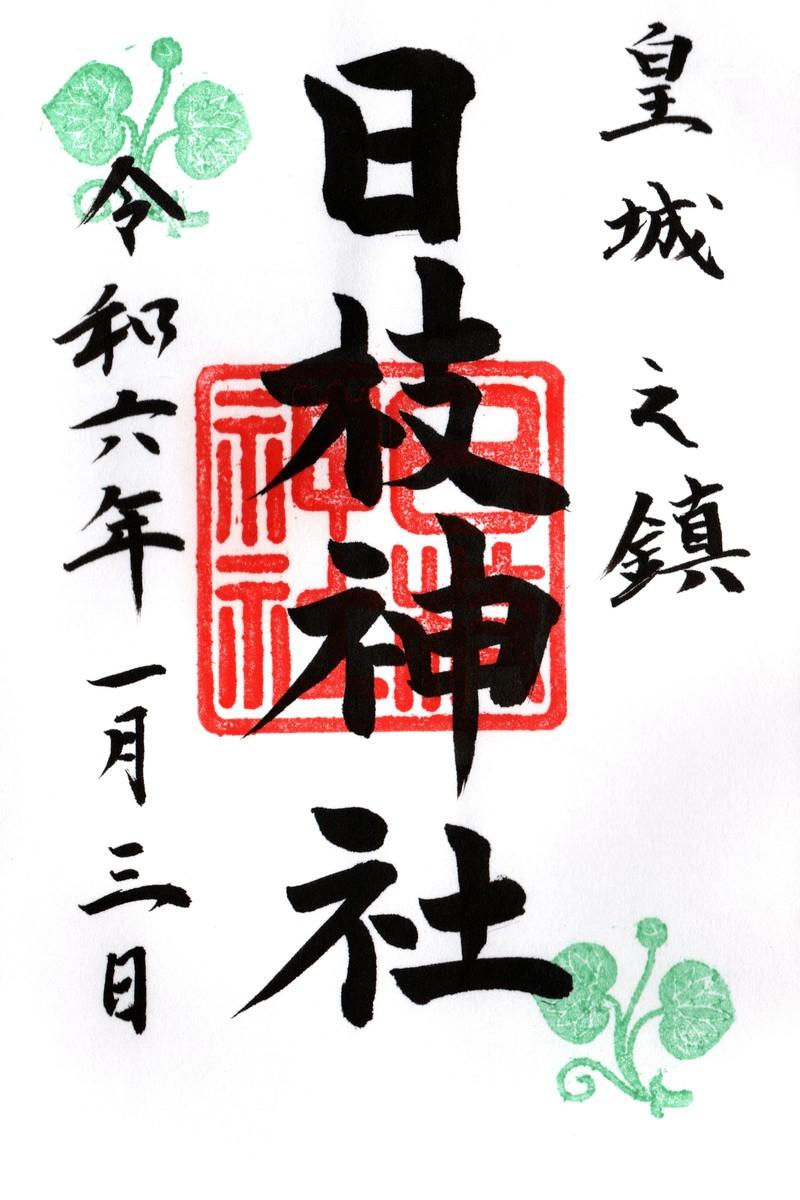 皇城之鎮
日枝神社
日枝神社
令和六年一月三日